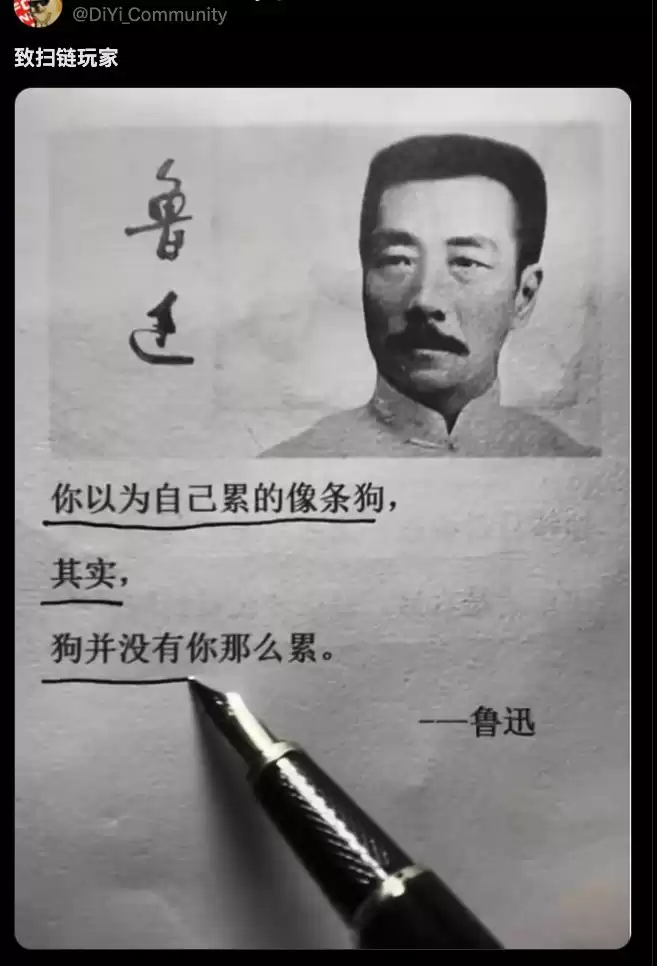 @DiYi_Community
致扫链玩家
鲁
迅
你以为自己累的像条狗，
其实，
狗并没有你那么累。
——鲁迅